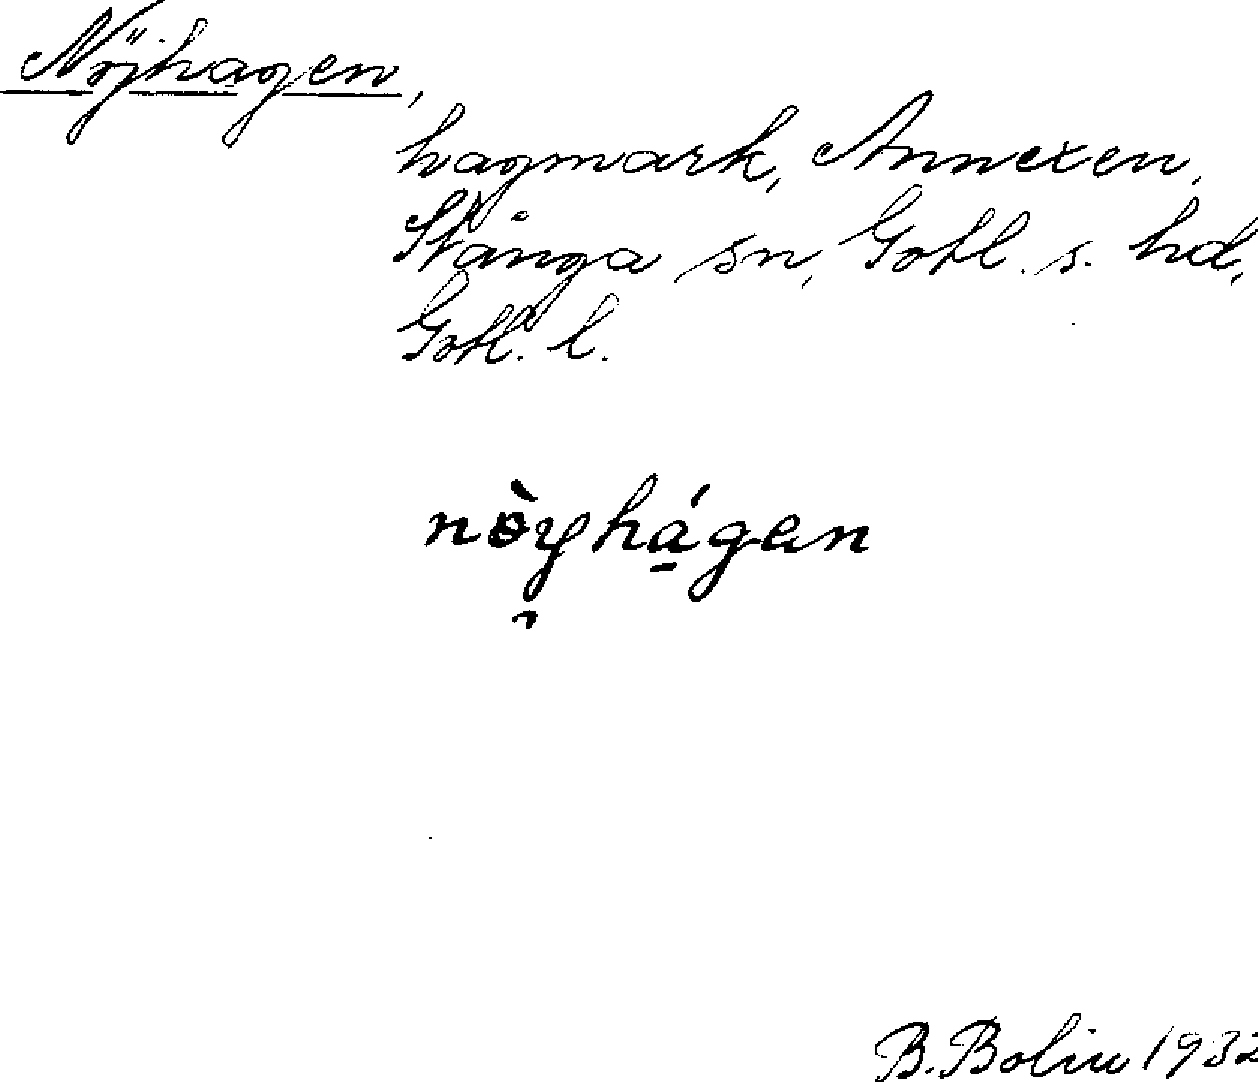 Nöjhagen,
hagmark, Annexen,
Stånga sn, Gotl. s. hd,
Gotl. l.
nòyhágen
B. Bolin 1932